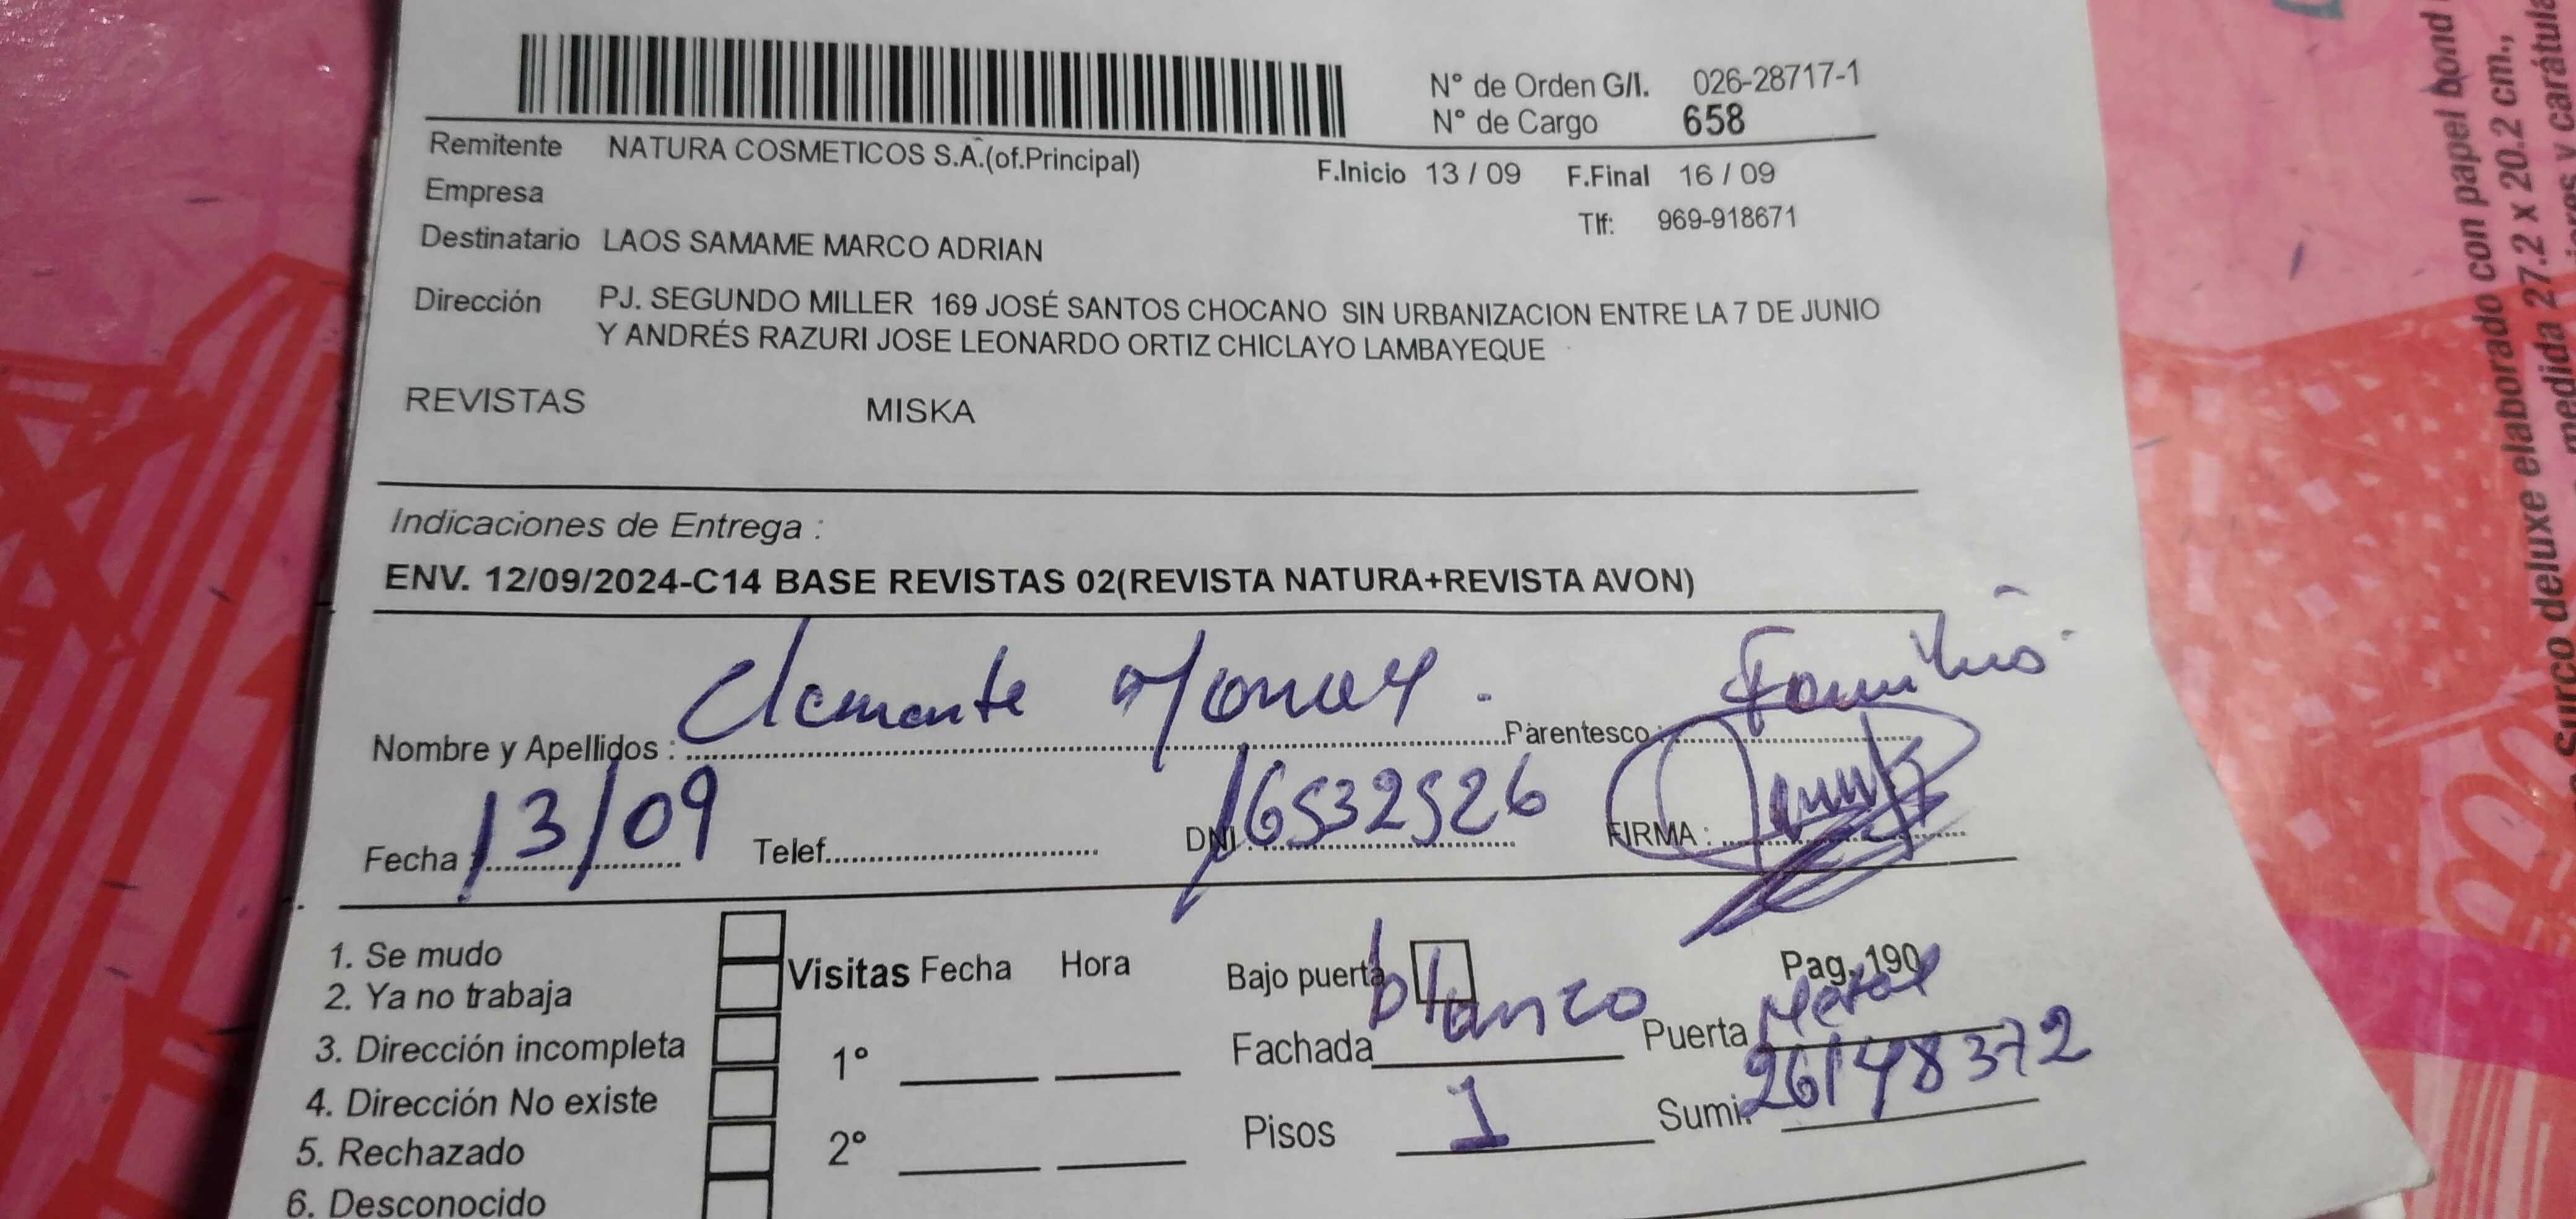 N° de Orden G/I. 026-28717-1
N° de Cargo 658
Remitente NATURA COSMETICOS S.A.(of.Principal)
F.Inicio 13 / 09 F.Final 16 / 09
Empresa
Tlf: 969-918671
Destinatario LAOS SAMAME MARCO ADRIAN
Dirección PJ. SEGUNDO MILLER 169 JOSÉ SANTOS CHOCANO SIN URBANIZACION ENTRE LA 7 DE JUNIO
Y ANDRÉS RAZURI JOSE LEONARDO ORTIZ CHICLAYO LAMBAYEQUE
REVISTAS MISKA
Indicaciones de Entrega :
ENV. 12/09/2024-C14 BASE REVISTAS 02(REVISTA NATURA+REVISTA AVON)
Nombre y Apellidos : Clemente Parentesco :
Fecha 13/09 Telef. DNI : 16532526 FIRMA :
1. Se mudo
2. Ya no trabaja
3. Dirección incompleta
4. Dirección No existe
5. Rechazado
6. Desconocido
Visitas Fecha Hora
1°
2°
Bajo puerta Pag. 190
Fachada blanco Puerta Metal
Pisos 1 Sumi. 26148372
deluxe elaborado con papel bond
medida 27.2 x 20.2 cm.,
y carátula